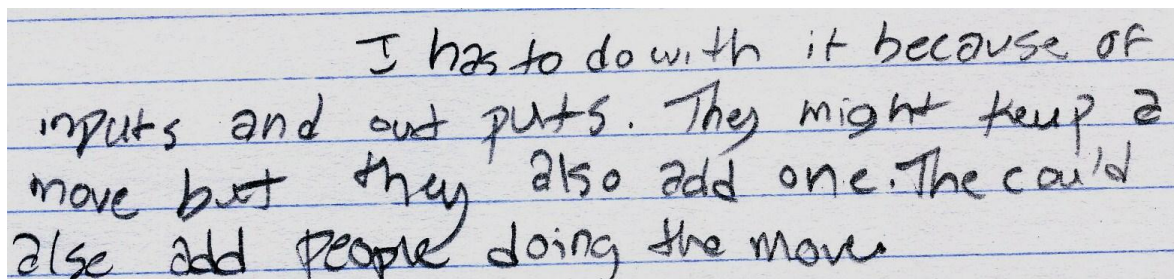 I has to do with it because of
inputs and out puts. They might keup a
move but they also add one. The could
alse add people doing the move